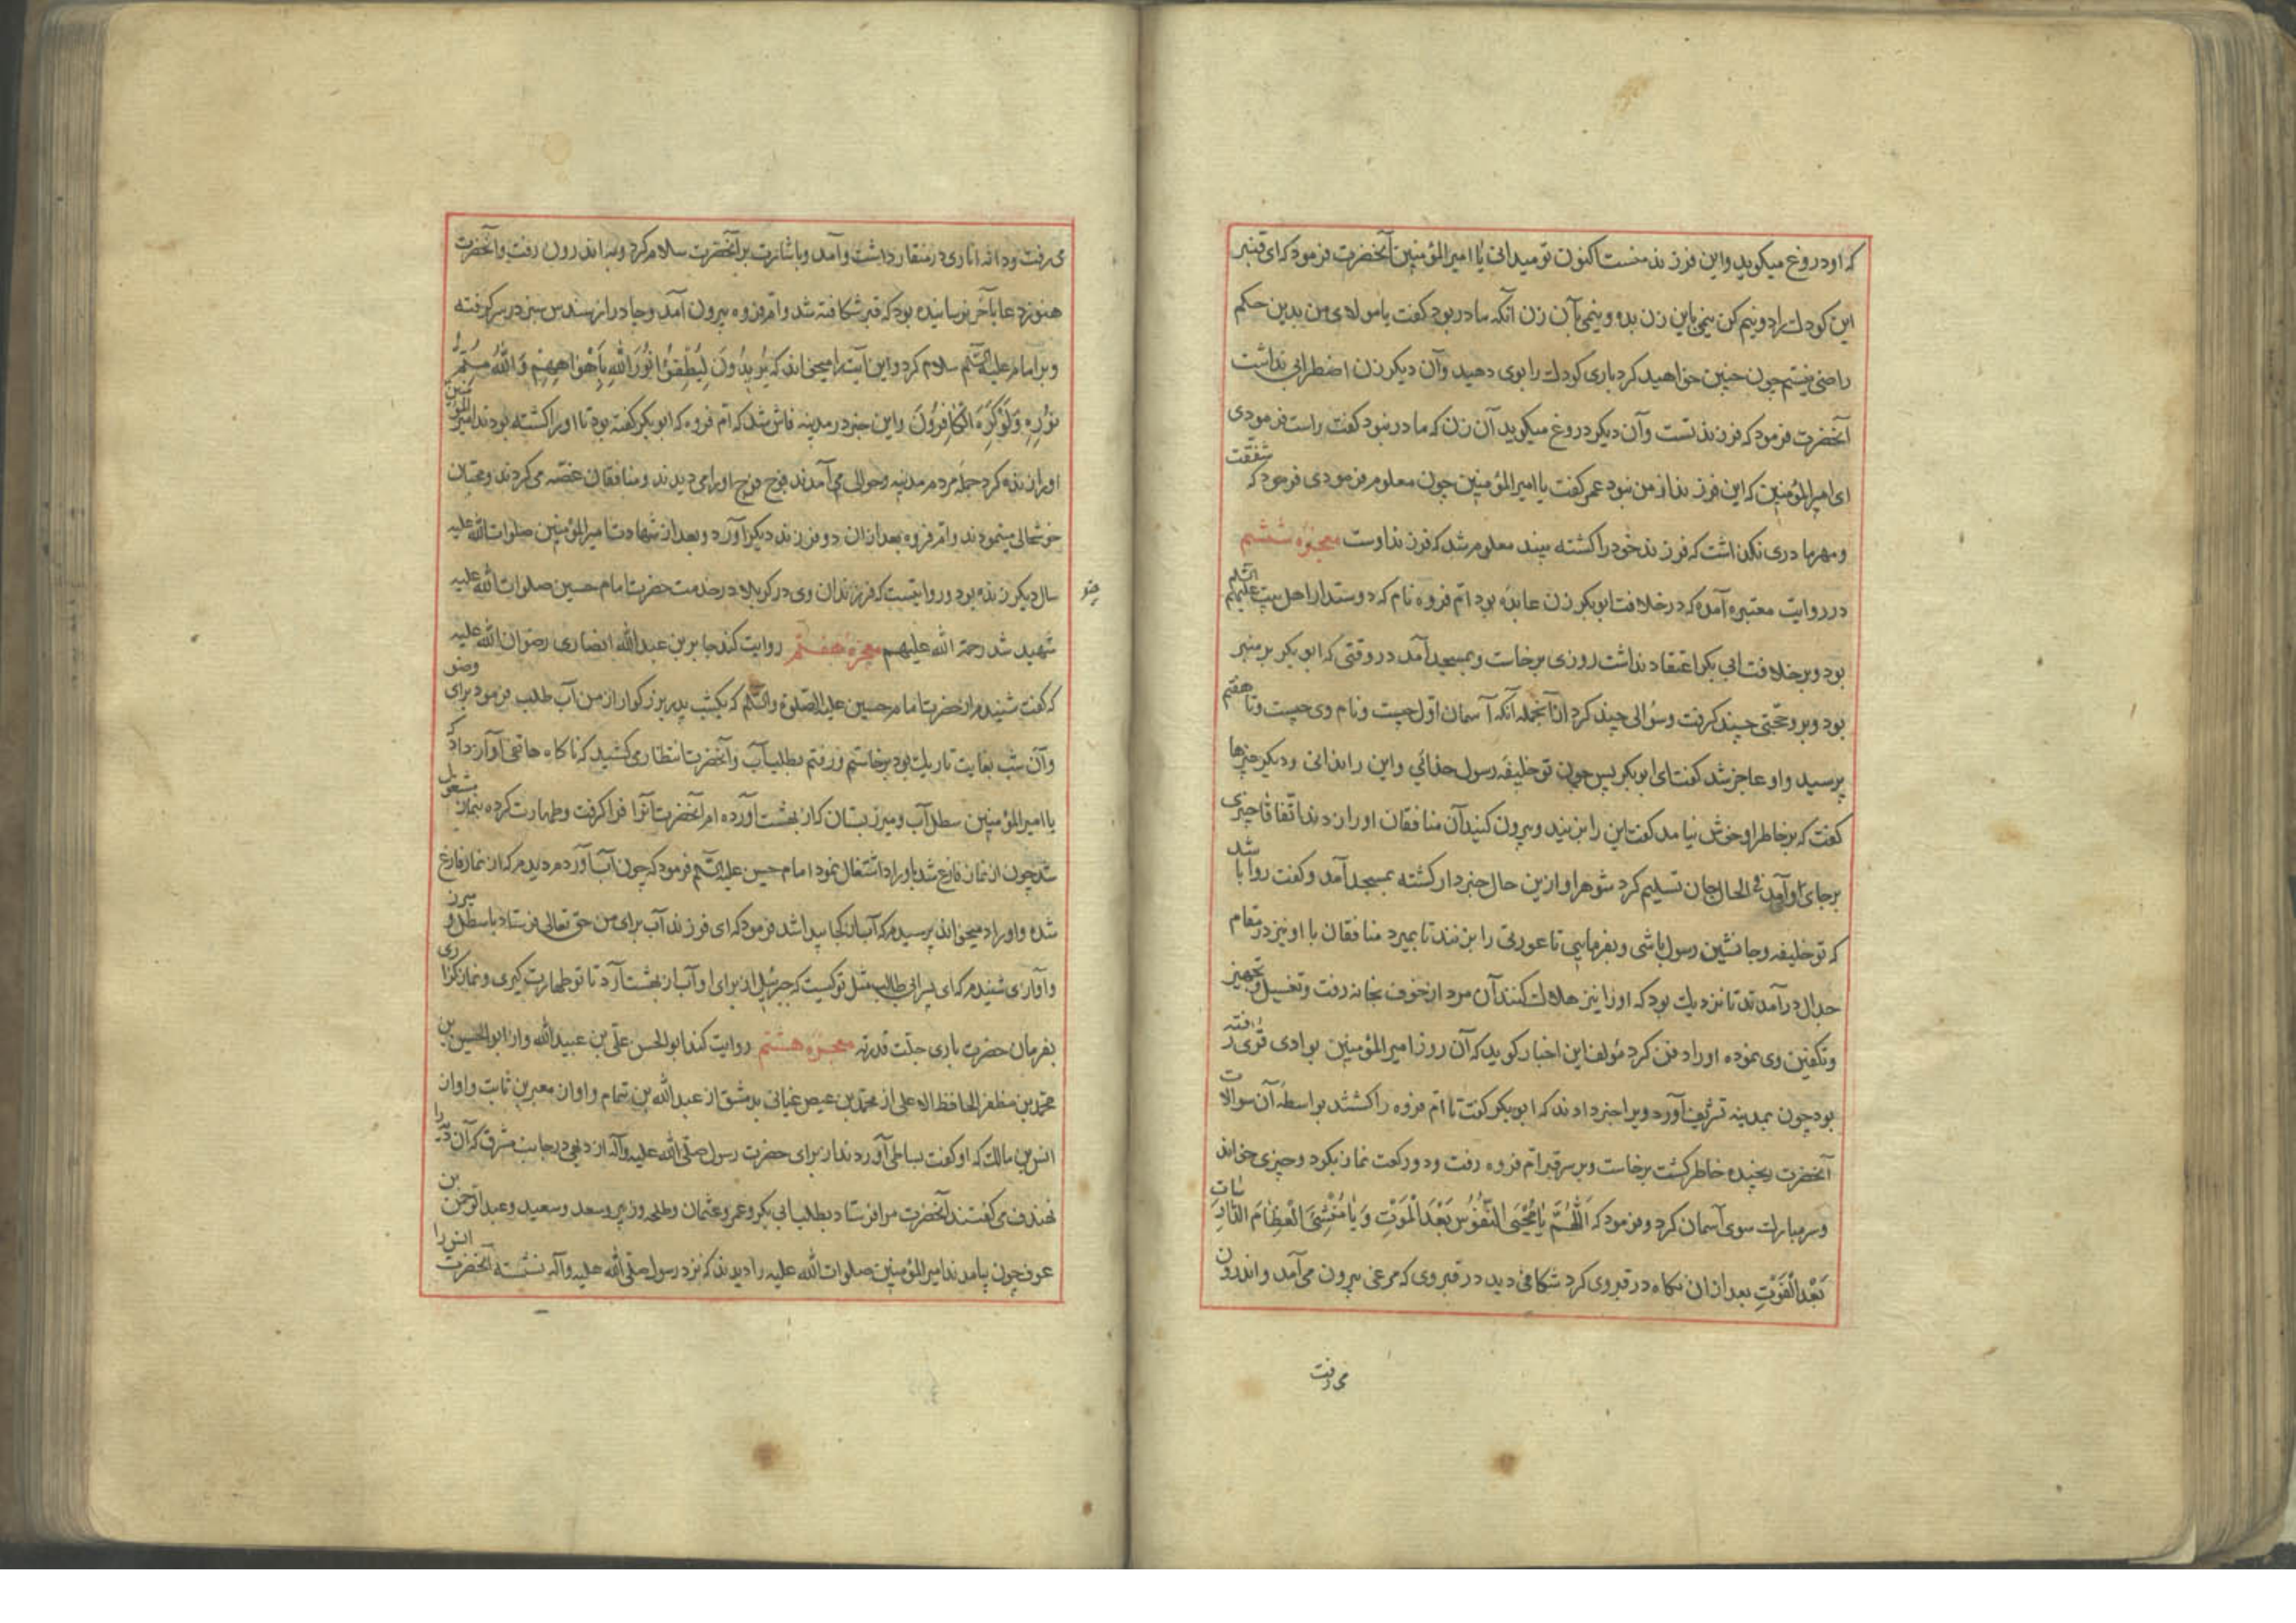 که او دروغ میکوید و این فرزند منست اکنون تو میدانی یا امیر المؤمنین آنحضرت فرمود که ای قنبر
این کودک را دو نیم کن نیمی باین زن بده و نیمی بآن زن آنکه مادر بود کفت یا مولای من بدین حکم
راضی نیستم چون چنین خواهید کرد باری کودک را بوی دهید و آن دیکر زن اضطرابی نداشت
آنحضرت فرمود که فرزند تست و آن دیکر دروغ میکوید آن زن که مادر نبود کفت راست فرمودی
ای امیر المؤمنین که این فرزند از من نبود عمر کفت یا امیر المؤمنین چون معلوم فرمودی فرمود که شفقت
و مهر مادری نکذاشت که فرزند خود را کشته بیند معلوم شد که فرزند اوست معجزه ششم
در روایت معتبره آمده که در خلافت ابو بکر زن عابده بود ام فروه نام که دوستدار اهل بیت علیهم السلم
بود و بر خلافت ابی بکر اعتقاد نداشت روزی برخاست و بمسجد آمد در وقتی که ابو بکر بر منبر
بود و بر وی حجتی چند کرفت و سؤالی چند کرد از آنجمله آنکه آسمان اول چیست و نام وی چیست و تا هفتم
پرسید و او عاجز شد کفت ای ابو بکر پس چون تو خلیفه رسول خدائی و این را ندانی و دیکر چیزها
کفت که بر خاطر او خوش نیامد کفت این را بزنید و بیرون کنید آن منافقان او را زدند اتفاقا چیزی
بر جای او آمد فی الحال جان تسلیم کرد شوهر او ازین حال خبردار کشته بمسجد آمد و کفت روا باشد
که تو خلیفه و جانشین رسول باشی و بفرمایی تا عورتی را بزنند تا بمیرد منافقان با او نیز در مقام
جدال درآمدند تا نزدیک بود که او را نیز هلاک کنند آن مرد از خوف بخانه رفت و تغسیل و تجهیز
و تکفین وی نموده او را دفن کرد مؤلف این اخبار کوید که آن روز امیر المؤمنین بوادی قری رفته
بود چون بمدینه تشریف آورد ویرا خبر دادند که ابو بکر کفت تا ام فروه را کشتند بواسطه آن سوالات
آنحضرت رنجیده خاطر کشت برخاست و بر سر قبر ام فروه رفت و دو رکعت نماز بکرد و چیزی خواند
و سر مبارک سوی آسمان کرد و فرمود که اَللّٰهُمَّ یٰا مُحْیِیَ النُّفُوسِ بَعْدَ الْمَوْتِ وَ یٰا مُنْشِیَ الْعِظٰامِ
بَعْدَ الْفَوْتِ بعد از ان نکاه در قبر وی کرد شکافی دید در قبر وی که مرغی بیرون می آمد و اندرون
می رفت
می رفت و دانه اناری در منقار داشت و آمد و باشارت بر آنحضرت سلام کرد و به اندرون رفت و آنحضرت
هنوز دعا بآخر نرسانیده بود که قبر شکافته شد و ام فروه بیرون آمد و چادر از سندس سبز در سر کرفته
و بر امام علیه السلم سلام کرد و این آیت را میخواند که یُرِیدُونَ لِیُطْفِؤُا نُورَ اللّٰهِ بِأَفْوٰاهِهِمْ وَ اللّٰهُ مُتِمُّ
نُورِهِ وَ لَوْ کَرِهَ الْکٰافِرُونَ و این خبر در مدینه فاش شد که ام فروه که ابو بکر کفته بود تا او را کشته بودند امیر المؤمنین
او را زنده کرد جمله مردم مدینه و حوالی می آمدند فوج فوج او را می دیدند و منافقان غصه می کردند و محبان
خوشحالی مینمودند و ام فروه بعد از ان دو فرزند دیکر آورد و بعد از شهادت امیر المؤمنین صلوات الله علیه
سال دیکر زنده بود و روایتیست که فرزندان وی در کربلا در خدمت حضرت امام حسین صلوات الله علیه
شهید شد رحمة الله علیهم معجزه هفتم روایت کند جابر بن عبدالله انصاری رضوان الله علیه
که کفت شنیدم از حضرت امام حسین علیه الصلوة والسلم که یکشب پدر بزرکوار از من آب طلب فرمود برای وضو
و آن شب بغایت تاریک بود برخاستم و رفتم بطلب آب و آنحضرت انتظار می کشید که ناکاه هاتفی آواز داد که
یا امیر المؤمنین سطل آب و میزر بستان که از بهشت آورده ام آنحضرت آنرا فرا کرفت و طهارت کرده بنماز مشغول
شد چون از نماز فارغ شد باوراد اشتغال نمود امام حسین علیه السلم فرمود که چون آب آوردم دیدم که از نماز فارغ
شده و اوراد میخواند پرسیدم که آب از کجا پیدا شد فرمود که ای فرزند آب برای من حق تعالی فرستاد با سطل و میزر
و آوازی شنیدم که ای پسر ابی طالب مثل تو کیست که جبرئیل از برای او آب از بهشت آرد تا تو طهارت کیری و نماز کزاری
بفرمان حضرت باری جلّت قدرته معجزه هشتم روایت کند ابو الحسن علی بن عبید الله و از ابو الحسن بن
محمد بن مظفر الحافظ از محمد بن بدمشق از عبد الله بن تمام و او از معمر بن ثابت و او از
انس بن مالک که او کفت بساطی آوردند از برای حضرت رسول صلی الله علیه و آله از دیهی در جانب مشرق که آن دیه را
می کفتند آنحضرت مرا فرستاد بطلب ابی بکر و عمر و عثمان و طلحه و زبیر و سعد و سعید و عبد الرحمن بن
عوف چون بیامدند امیر المؤمنین صلوات الله علیه را دیدند که نزد رسول صلی الله علیه و آله نشسته آنحضرت انس را